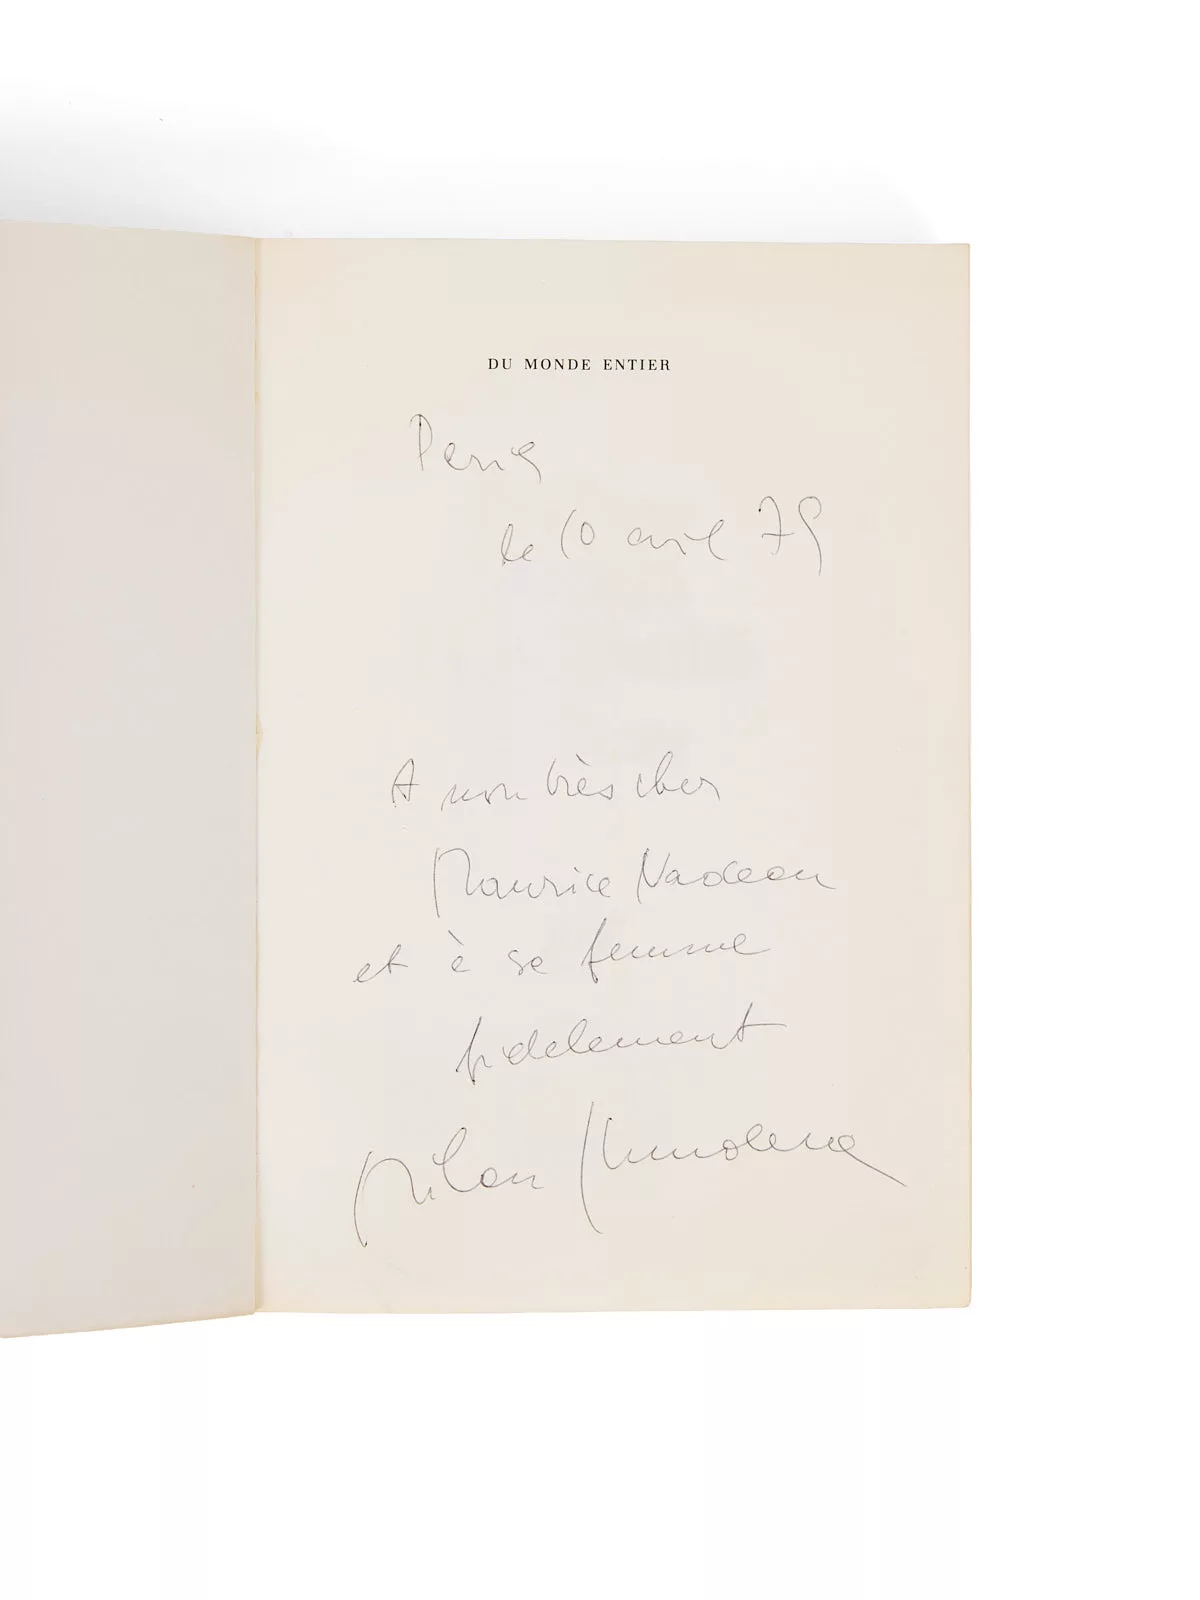 DU MONDE ENTIER
Paris
le 10 avril 79
A mon très cher
Maurice Nadeau
et à sa femme
fidelement
Milan Kundera